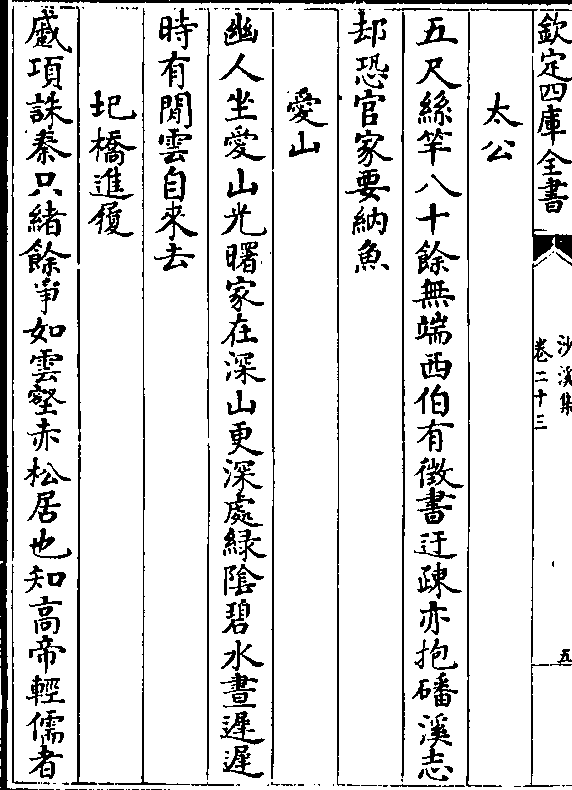 欽定四庫全書
沙溪集
卷二十三
五
太公
五尺絲竿八十餘無端西伯有徵書迂疎亦抱磻溪志
却恐官家要納魚
愛山
幽人坐愛山光曙家在深山更深處緑隂碧水晝遲遲
時有閒雲自來去
圯橋進履
蹙項誅秦只緒餘爭如雲壑赤松居也知高帝輕儒者